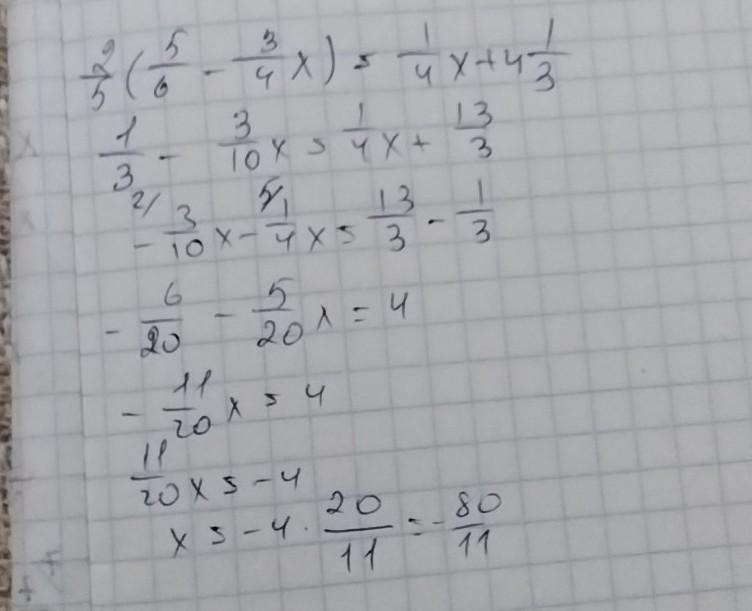 2/5 (5/6 - 3/4 x) = 1/4 x + 4 1/3
1/3 - 3/10 x = 1/4 x + 13/3
2/ - 3/10 x - 5/ 1/4 x = 13/3 - 1/3
- 6/20 - 5/20 x = 4
- 11/20 x = 4
11/20 x = -4
x = -4 · 20/11 = -80/11